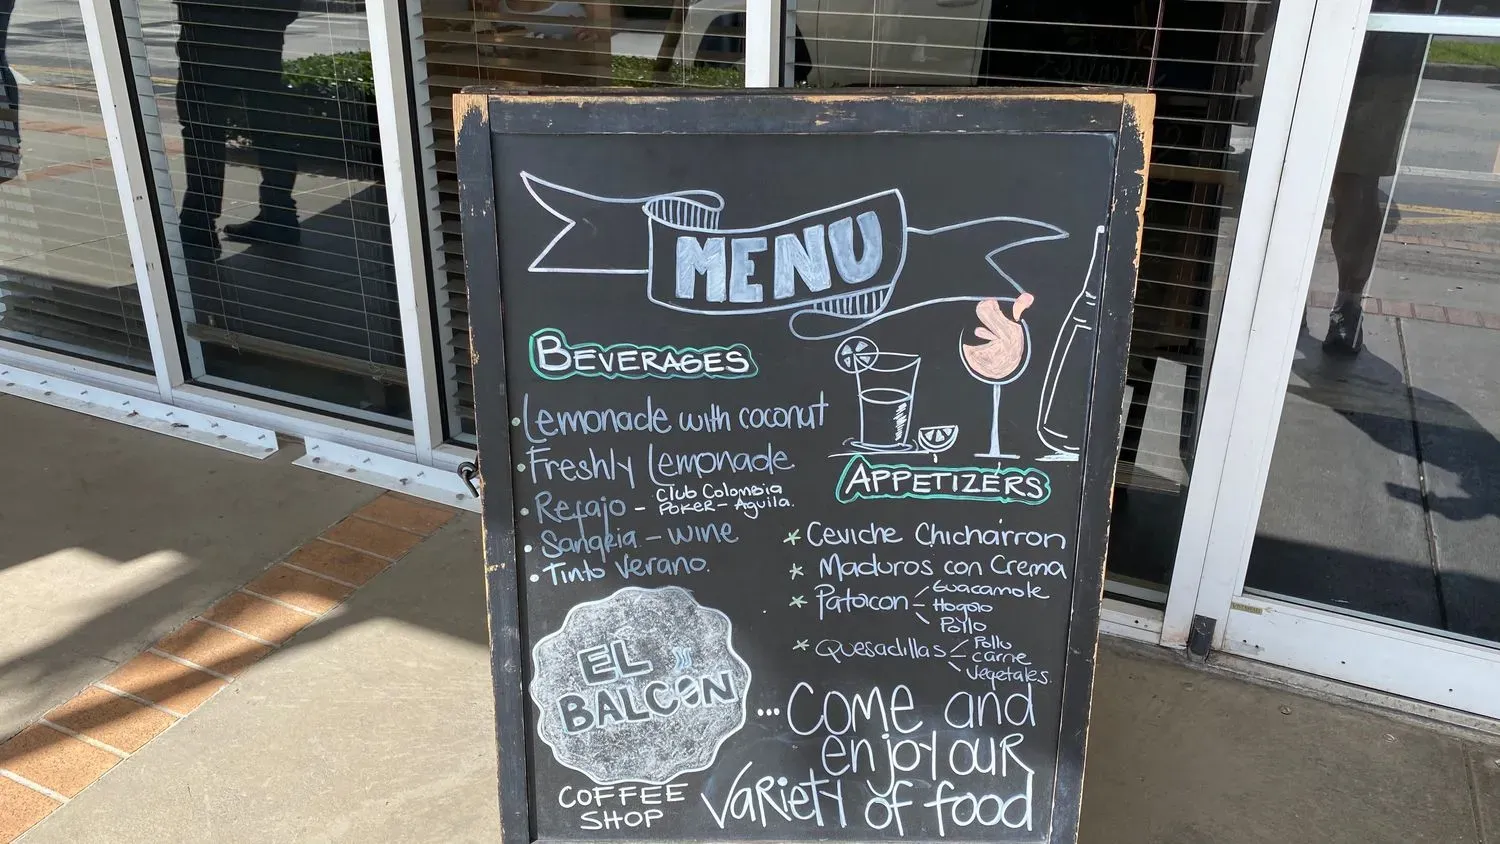 MENU
BEVERAGES
Lemonade with coconut
Freshly Lemonade
Refajo - Club Colombia
Poker - Aguila.
Sangria - wine
Tinto Verano.
APPETIZERS
Ceviche Chicharron
Maduros con Crema
Patoicon - Guacamole
Hogoio
Pollo
Quesadillas - Pollo
carne
Vegetales.
EL
BALCON
COFFEE
SHOP
...COME and
enjoy our
Variety of food